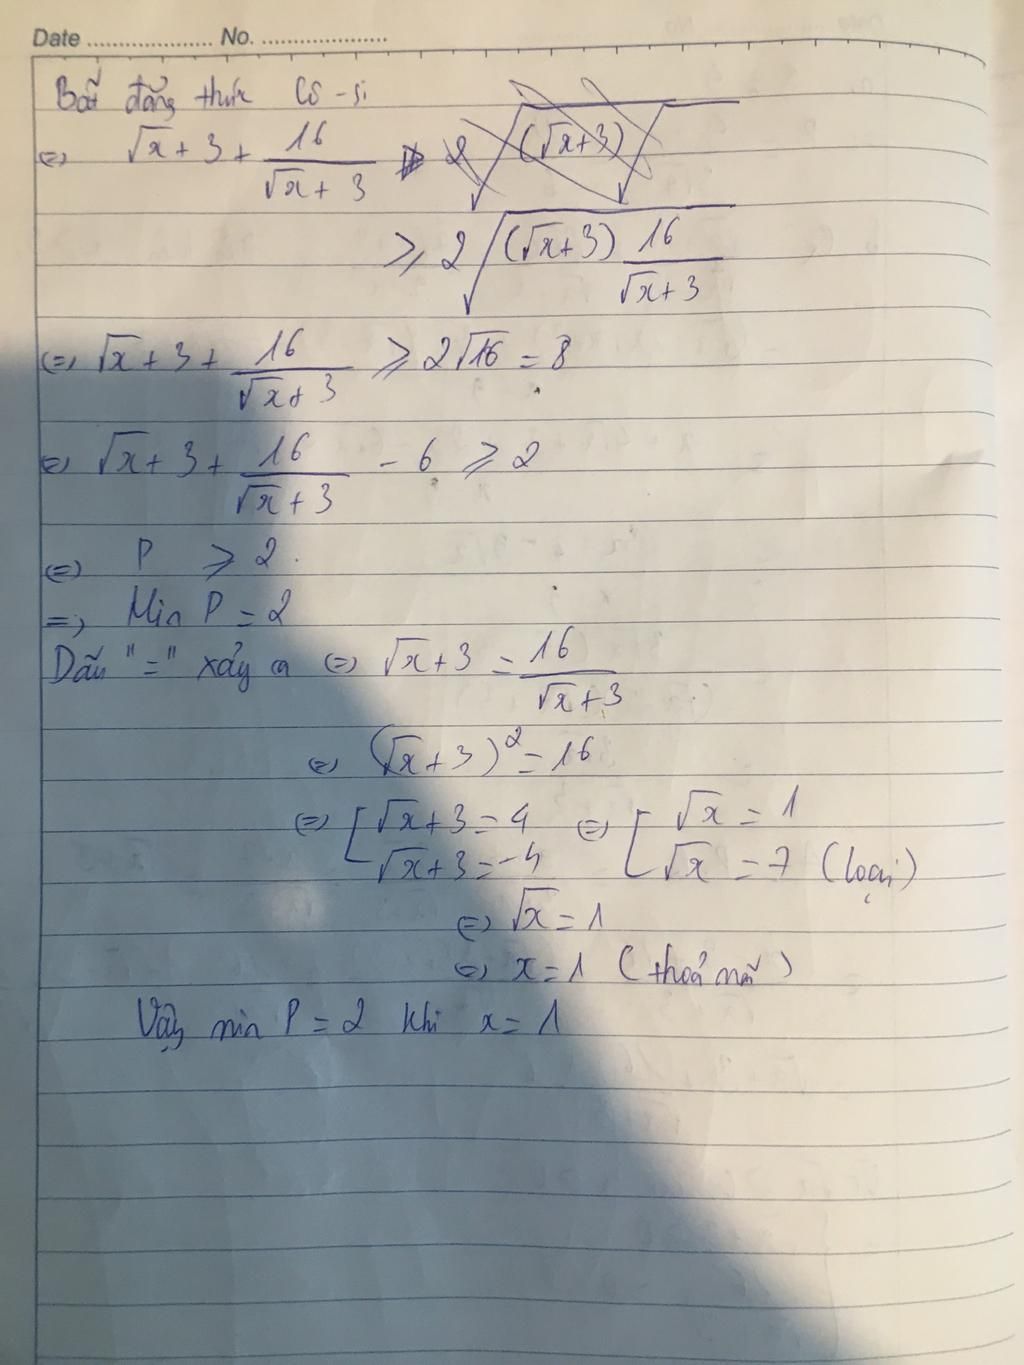 Date .................... No. ....................
Bất đẳng thức Cô-si
⇔ √x + 3 + 16/(√x + 3)
≥ 2√((√x+3) 16/(√x+3))
⇔ √x + 3 + 16/(√x+3) ≥ 2√16 = 8
⇔ √x + 3 + 16/(√x+3) - 6 ≥ 2
⇔ P ≥ 2
⇒ Min P = 2
Dấu "=" xảy ra ⇔ √x+3 = 16/(√x+3)
⇔ (√x+3)² = 16
⇔ [ √x+3 = 4 ⇔ [ √x = 1
√x+3 = -4 √x = 7 (loại)
⇔ √x = 1
⇔ x = 1 (thoả mãn)
Vậy min P = 2 khi x = 1